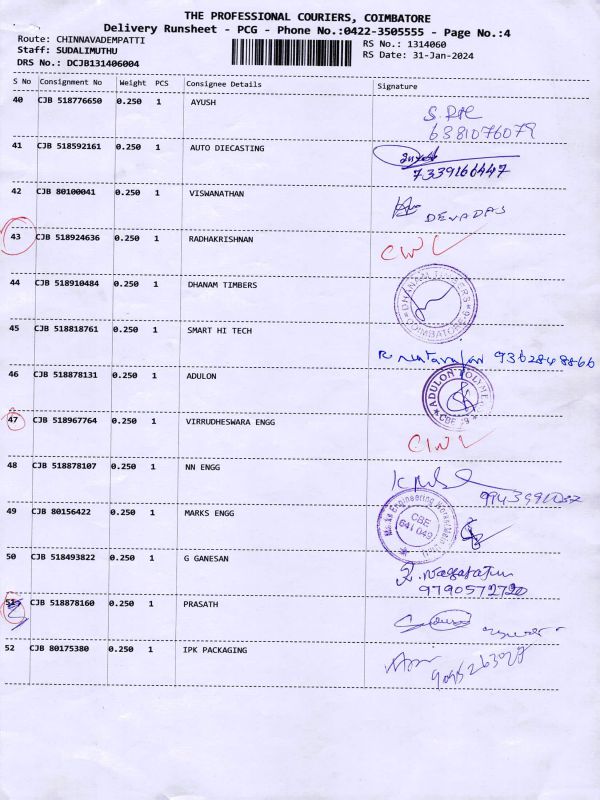 THE PROFESSIONAL COURIERS, COIMBATORE
Delivery Runsheet - PCG - Phone No.:0422-3505555 - Page No.:4
Route: CHINNAVADEMPATTI
Staff: SUDALIMUTHU
DRS No.: DCJB131406004
RS No.: 1314060
RS Date: 31-Jan-2024
S No Consignment No Weight PCS Consignee Details Signature
40 CJB 518776650 0.250 1 AYUSH
6381076079
41 CJB 518592161 0.250 1 AUTO DIECASTING
7339166447
42 CJB 80100041 0.250 1 VISWANATHAN
DEVADAS
43 CJB 518924636 0.250 1 RADHAKRISHNAN
44 CJB 518910484 0.250 1 DHANAM TIMBERS
DHANAM TIMBERS COIMBATORE
45 CJB 518818761 0.250 1 SMART HI TECH
R Natarajan 9362848866
46 CJB 518878131 0.250 1 ADULON
ADULON POLYMER
47 CJB 518967764 0.250 1 VIRRUDHESWARA ENGG
48 CJB 518878107 0.250 1 NN ENGG
49 CJB 80156422 0.250 1 MARKS ENGG
Marks Engineering
CBE
641 049
50 CJB 518493822 0.250 1 G GANESAN
9790572720
51 CJB 518878160 0.250 1 PRASATH
52 CJB 80175380 0.250 1 IPK PACKAGING